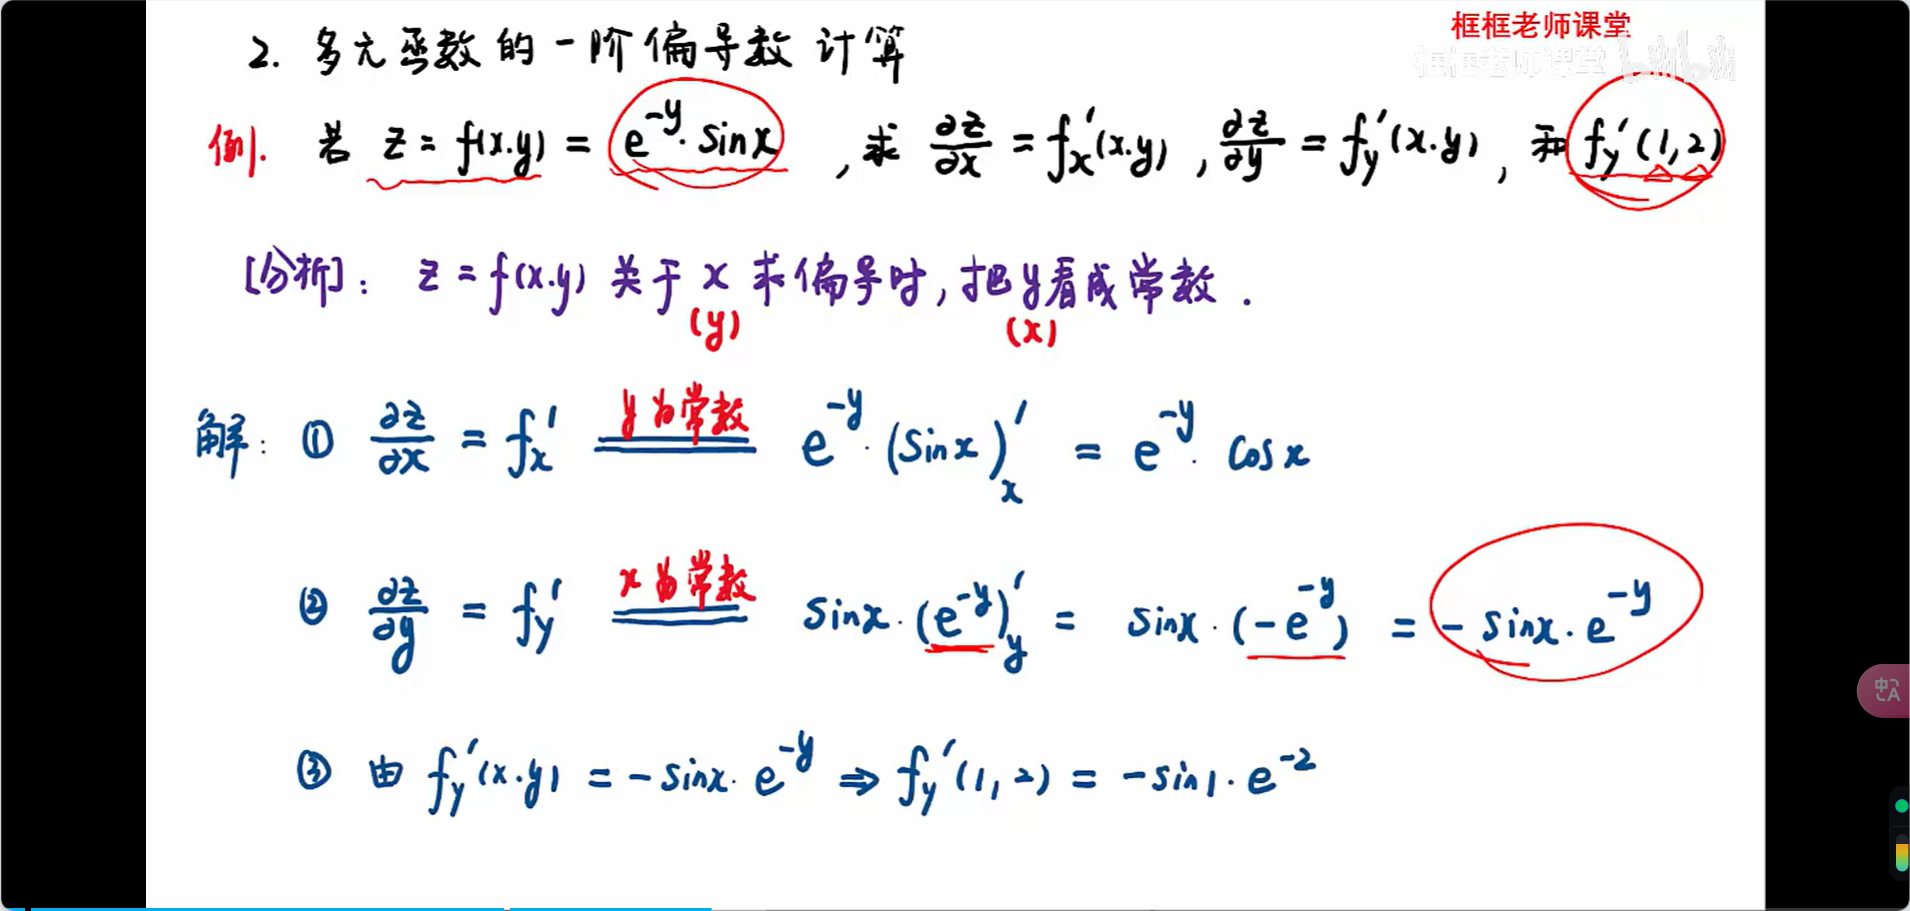 框框老师课堂
框框老师课堂 bilibili
2. 多元函数的一阶偏导数计算
例. 若 z = f(x.y) = e^{-y}·sinx , 求 ∂z/∂x = f_x'(x.y) , ∂z/∂y = f_y'(x.y) , 和 f_y'(1,2)
[分析]: z = f(x.y) 关于 x 求偏导时, 把y看成常数.
(y) (x)
解: ① ∂z/∂x = f_x' y为常数 e^{-y}·(sinx)'_x = e^{-y}·cosx
② ∂z/∂y = f_y' x为常数 sinx·(e^{-y})'_y = sinx·(-e^{-y}) = -sinx·e^{-y}
③ 由 f_y'(x.y) = -sinx·e^{-y} ⇒ f_y'(1,2) = -sin1·e^{-2}
中A